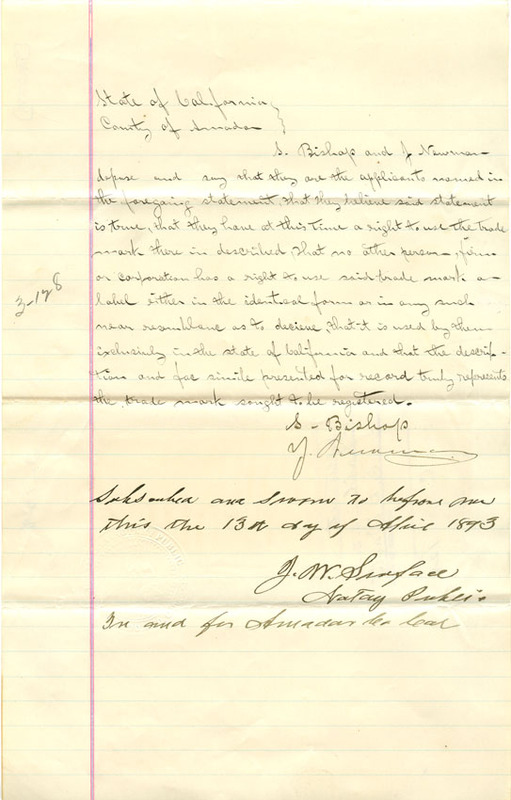 State of California }
County of Amador }
S. Bishop and J Newman
depose and say that they are the applicants named in
the foregoing statement, that they believe said statement
is true, that they have at this time a right to use the trade
mark there in described, that no other person, firm
or corporation has a right to use said trade mark or
label either in the identical form or in any such
near resemblance as to decieve, that it is used by them
exclusively in the state of California and that the descrip-
tion and fac simile presented for record truly represents
the trade mark sought to be registered.
3-128
S - Bishop
J. Newman
Subscribed and Sworn to before me
this the 13th day of April 1893
J. W. Surface
Notary Public
In and for Amador Co Cal